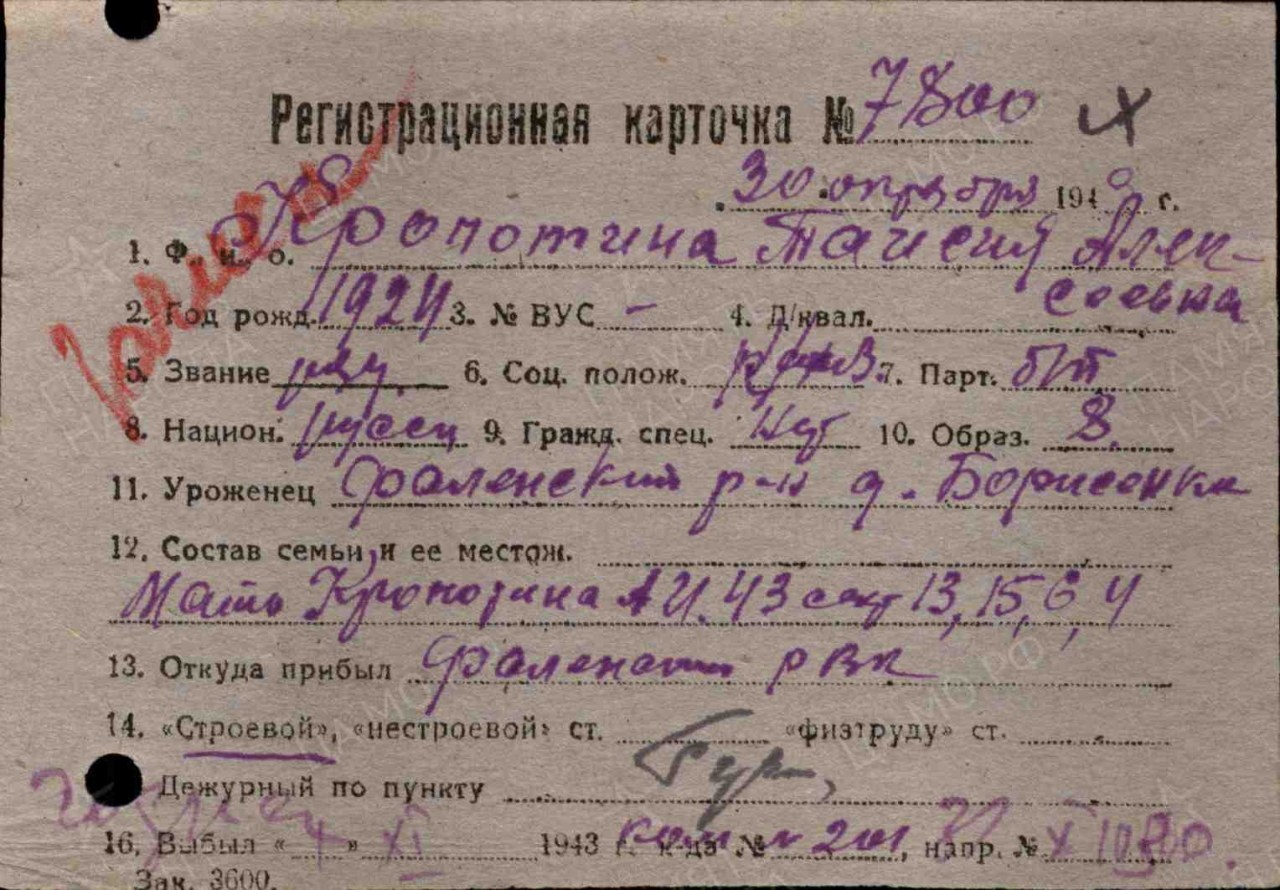 Регистрационная карточка № 7800
30 октября 194 г.
1. Ф. и. о. Кропотина Таисия Алек-
сеевна
2. Год рожд. 1924 3. № ВУС - 4. Д/квал.
5. Звание ряд 6. Соц. полож. 7. Парт. б/п
8. Национ. русск 9. Гражд. спец. 10. Образ. 8.
11. Уроженец Фаленский р-н д. Борисенки
12. Состав семьи и ее местож.
Мать Кропотина А И. 43 13, 15, 6, 4
13. Откуда прибыл Фаленским РВК
14. «Строевой», «нестроевой» ст. «физтруду» ст.
Дежурный по пункту
16. Выбыл « » XI 1943 г. к-да № 201, напр. №
Зак. 3600.